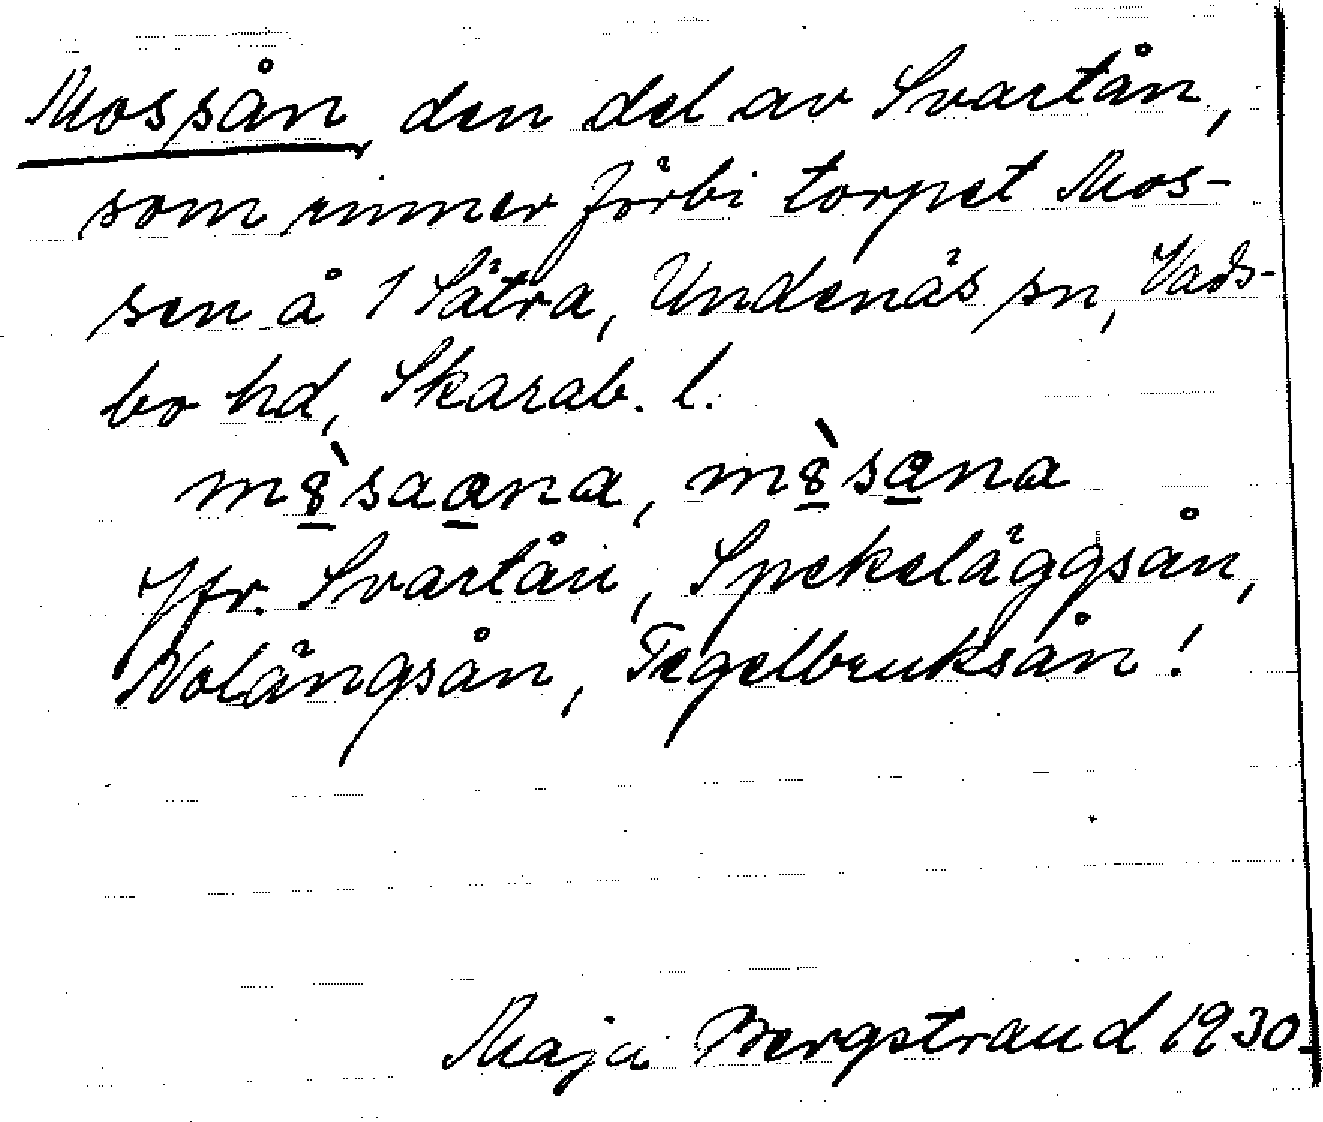 Mossån, den del av Svartån,
som rinner förbi torpet Mos-
sen å 1 Sätra, Undenäs sn, Vads-
bo hd, Skarab. l.
Jfr. Svartån, Spekeläggsån,
Nolängsån, Tegelbruksån!
Maja Bergstrand 1930.